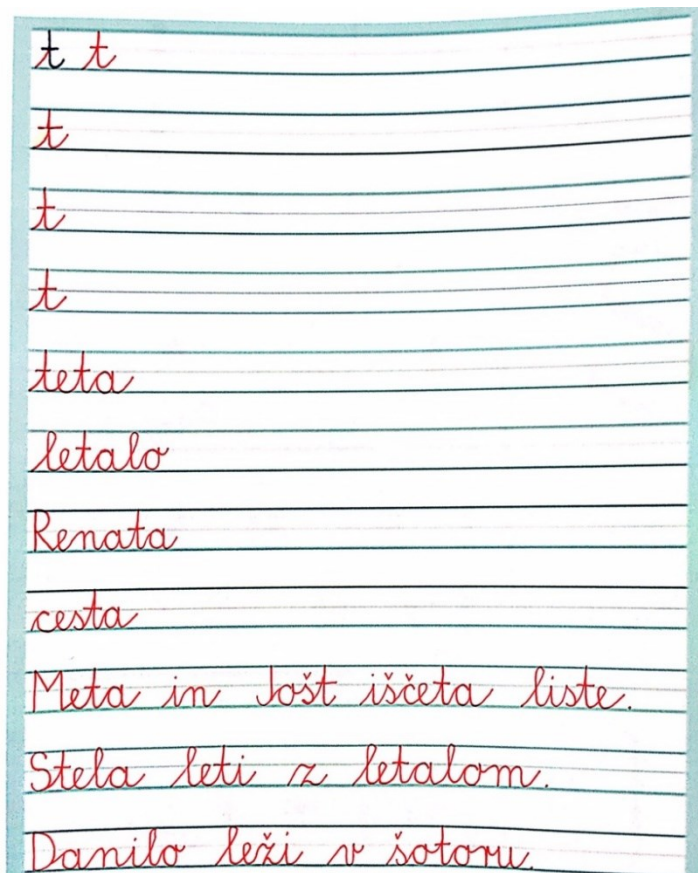 t t
t
t
t
teta
letalo
Renata
cesta
Meta in Jošt iščeta liste.
Stela leti z letalom.
Danilo leži v šotoru.